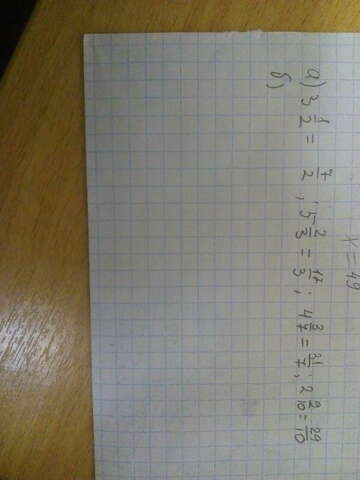 x=49
а) 3 1/2 = 7/2; 5 2/3 = 17/3; 4 3/7 = 31/7; 2 9/10 = 29/10
б)